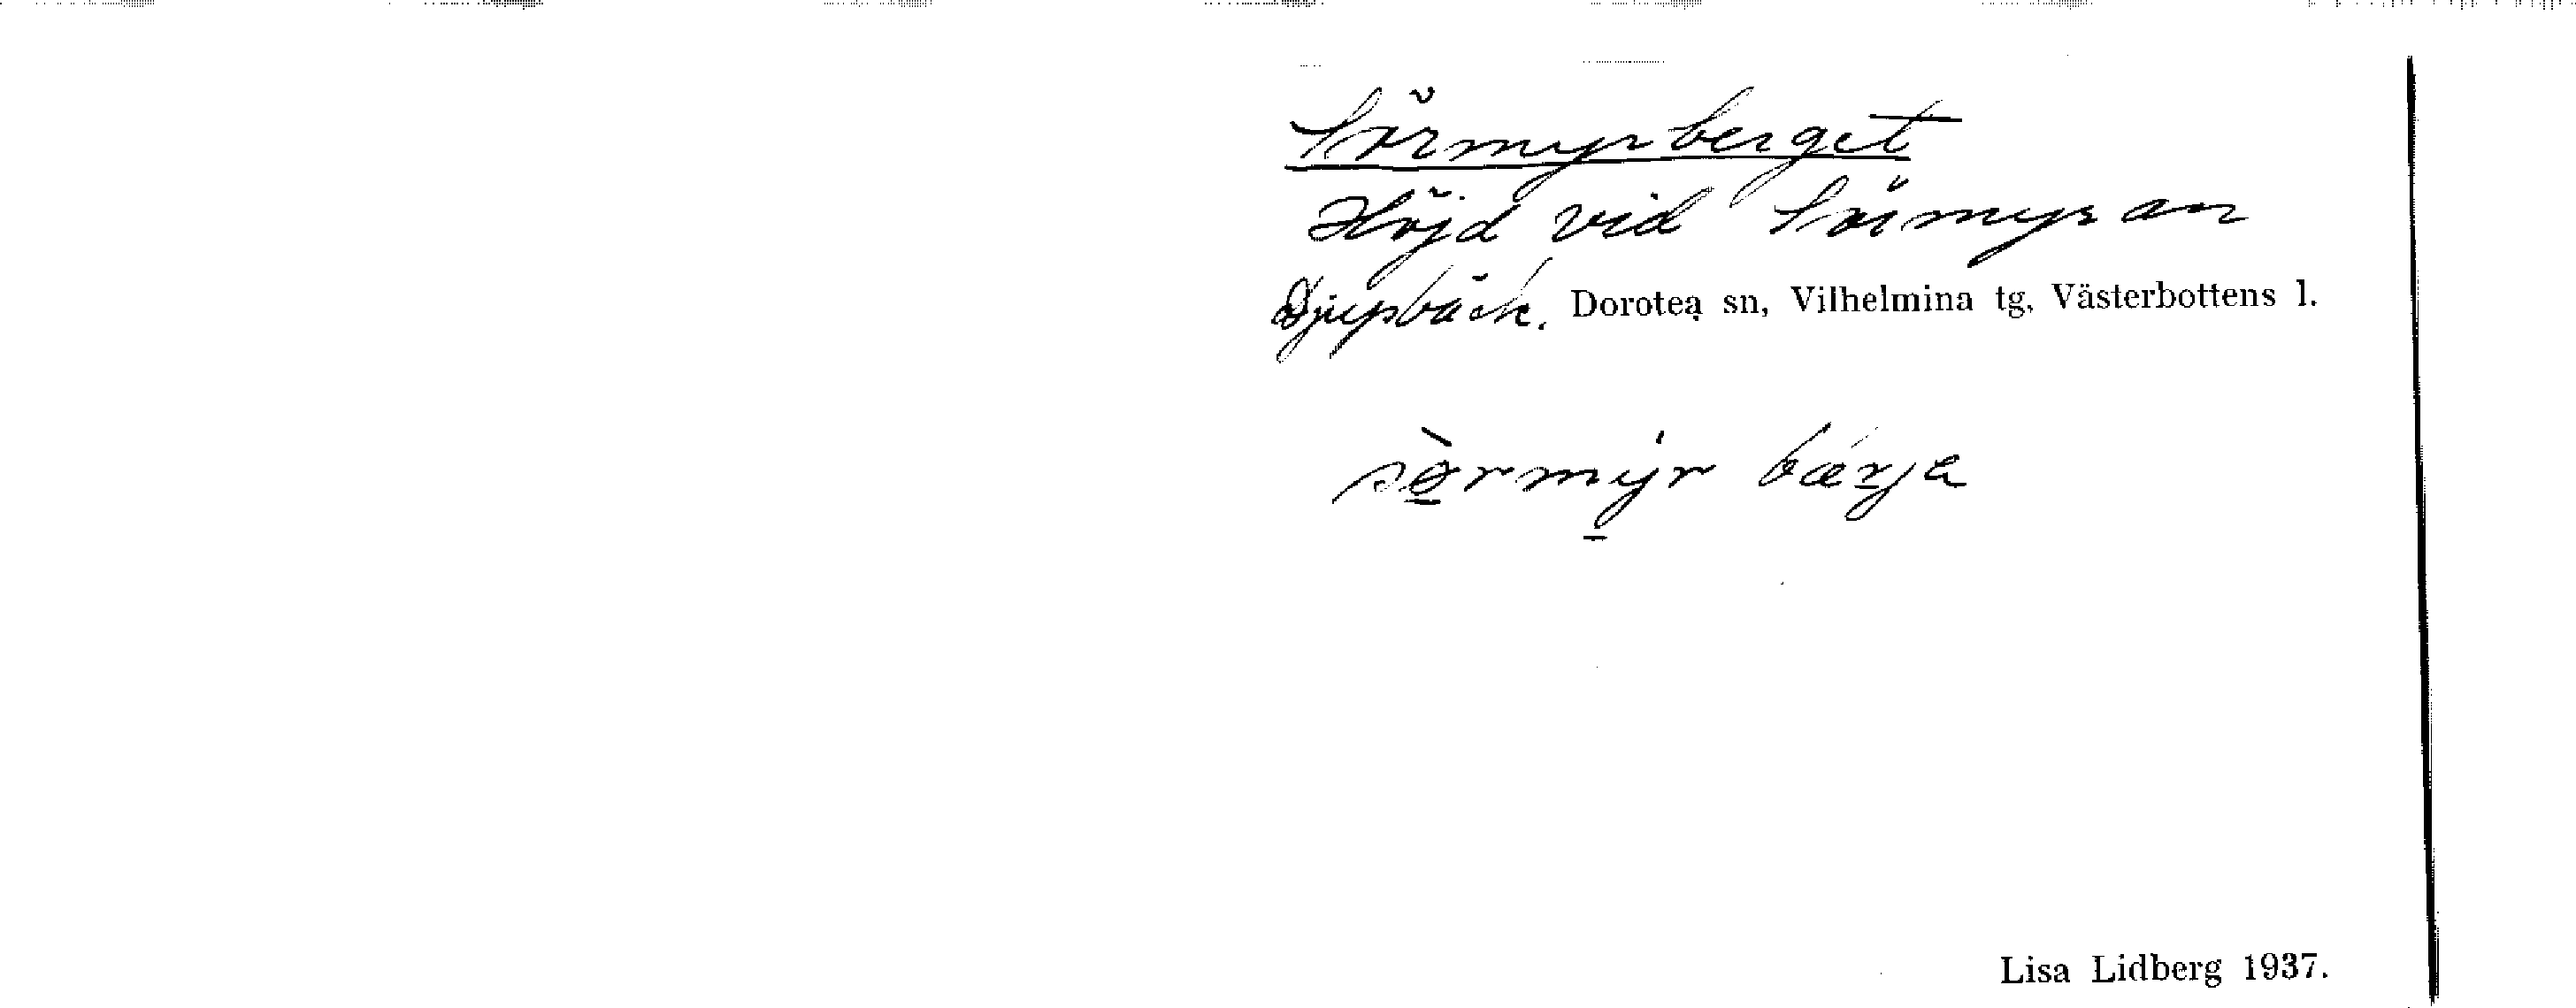 Sörmyrberget
Höjd vid Sörmyran
Djupbäck. Dorotea sn, Vilhelmina tg, Västerbottens l.
sø̀rmyr bærja
Lisa Lidberg 1937.